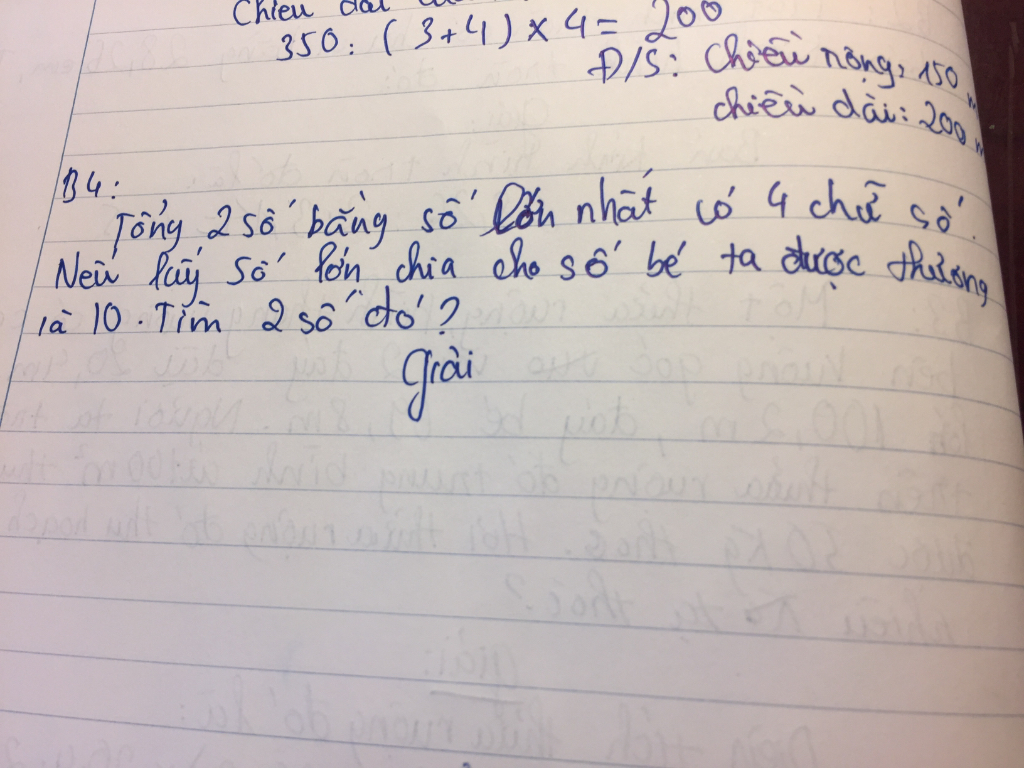 Chiều dài
350 : ( 3 + 4 ) x 4 = 200
Đ/S : Chiều rộng : 150 m
chiều dài : 200 m
B4 :
Tổng 2 số bằng số lớn nhất có 4 chữ số.
Nếu lấy số lớn chia cho số bé ta được thương
là 10. Tìm 2 số đó ?
Giải